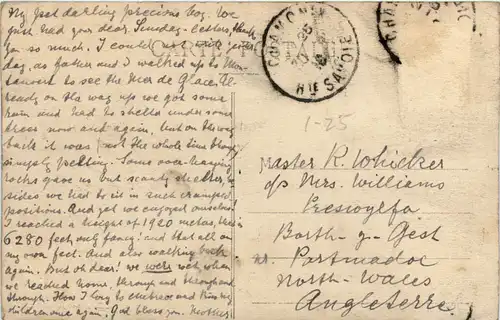 My Just darling precious boy. We
just had your dear Sunday-letter, thank
you so much. I could not write yester
day, as father and I walked up to Mon-
tanvert to see the Mer de Glace. Al-
ready on the way up we got some
rain and had to shelter under some
trees now and again, but on the way
back it was just the whole time
simply pelting. Some over-hanging
rocks gave us but scanty shelter
sides we had to sit in such cramped
positions. And yet we enjoyed ourselves!
I reached a height of 1920 metres, that is
6280 feet, only fancy! and that all on
my own feet. And also walking back
again. But oh dear! we were wet, when
we reached home, through and through and
through. How I long to embrace and kiss my
children once again. God bless you. Mother
CHAMONIX
25
HTE SAVOIE
1-25
Master R. Whicker
c/o Mrs. Williams
Borth-y-Gest
nr. Portmadoc
North-Wales
Angleterre